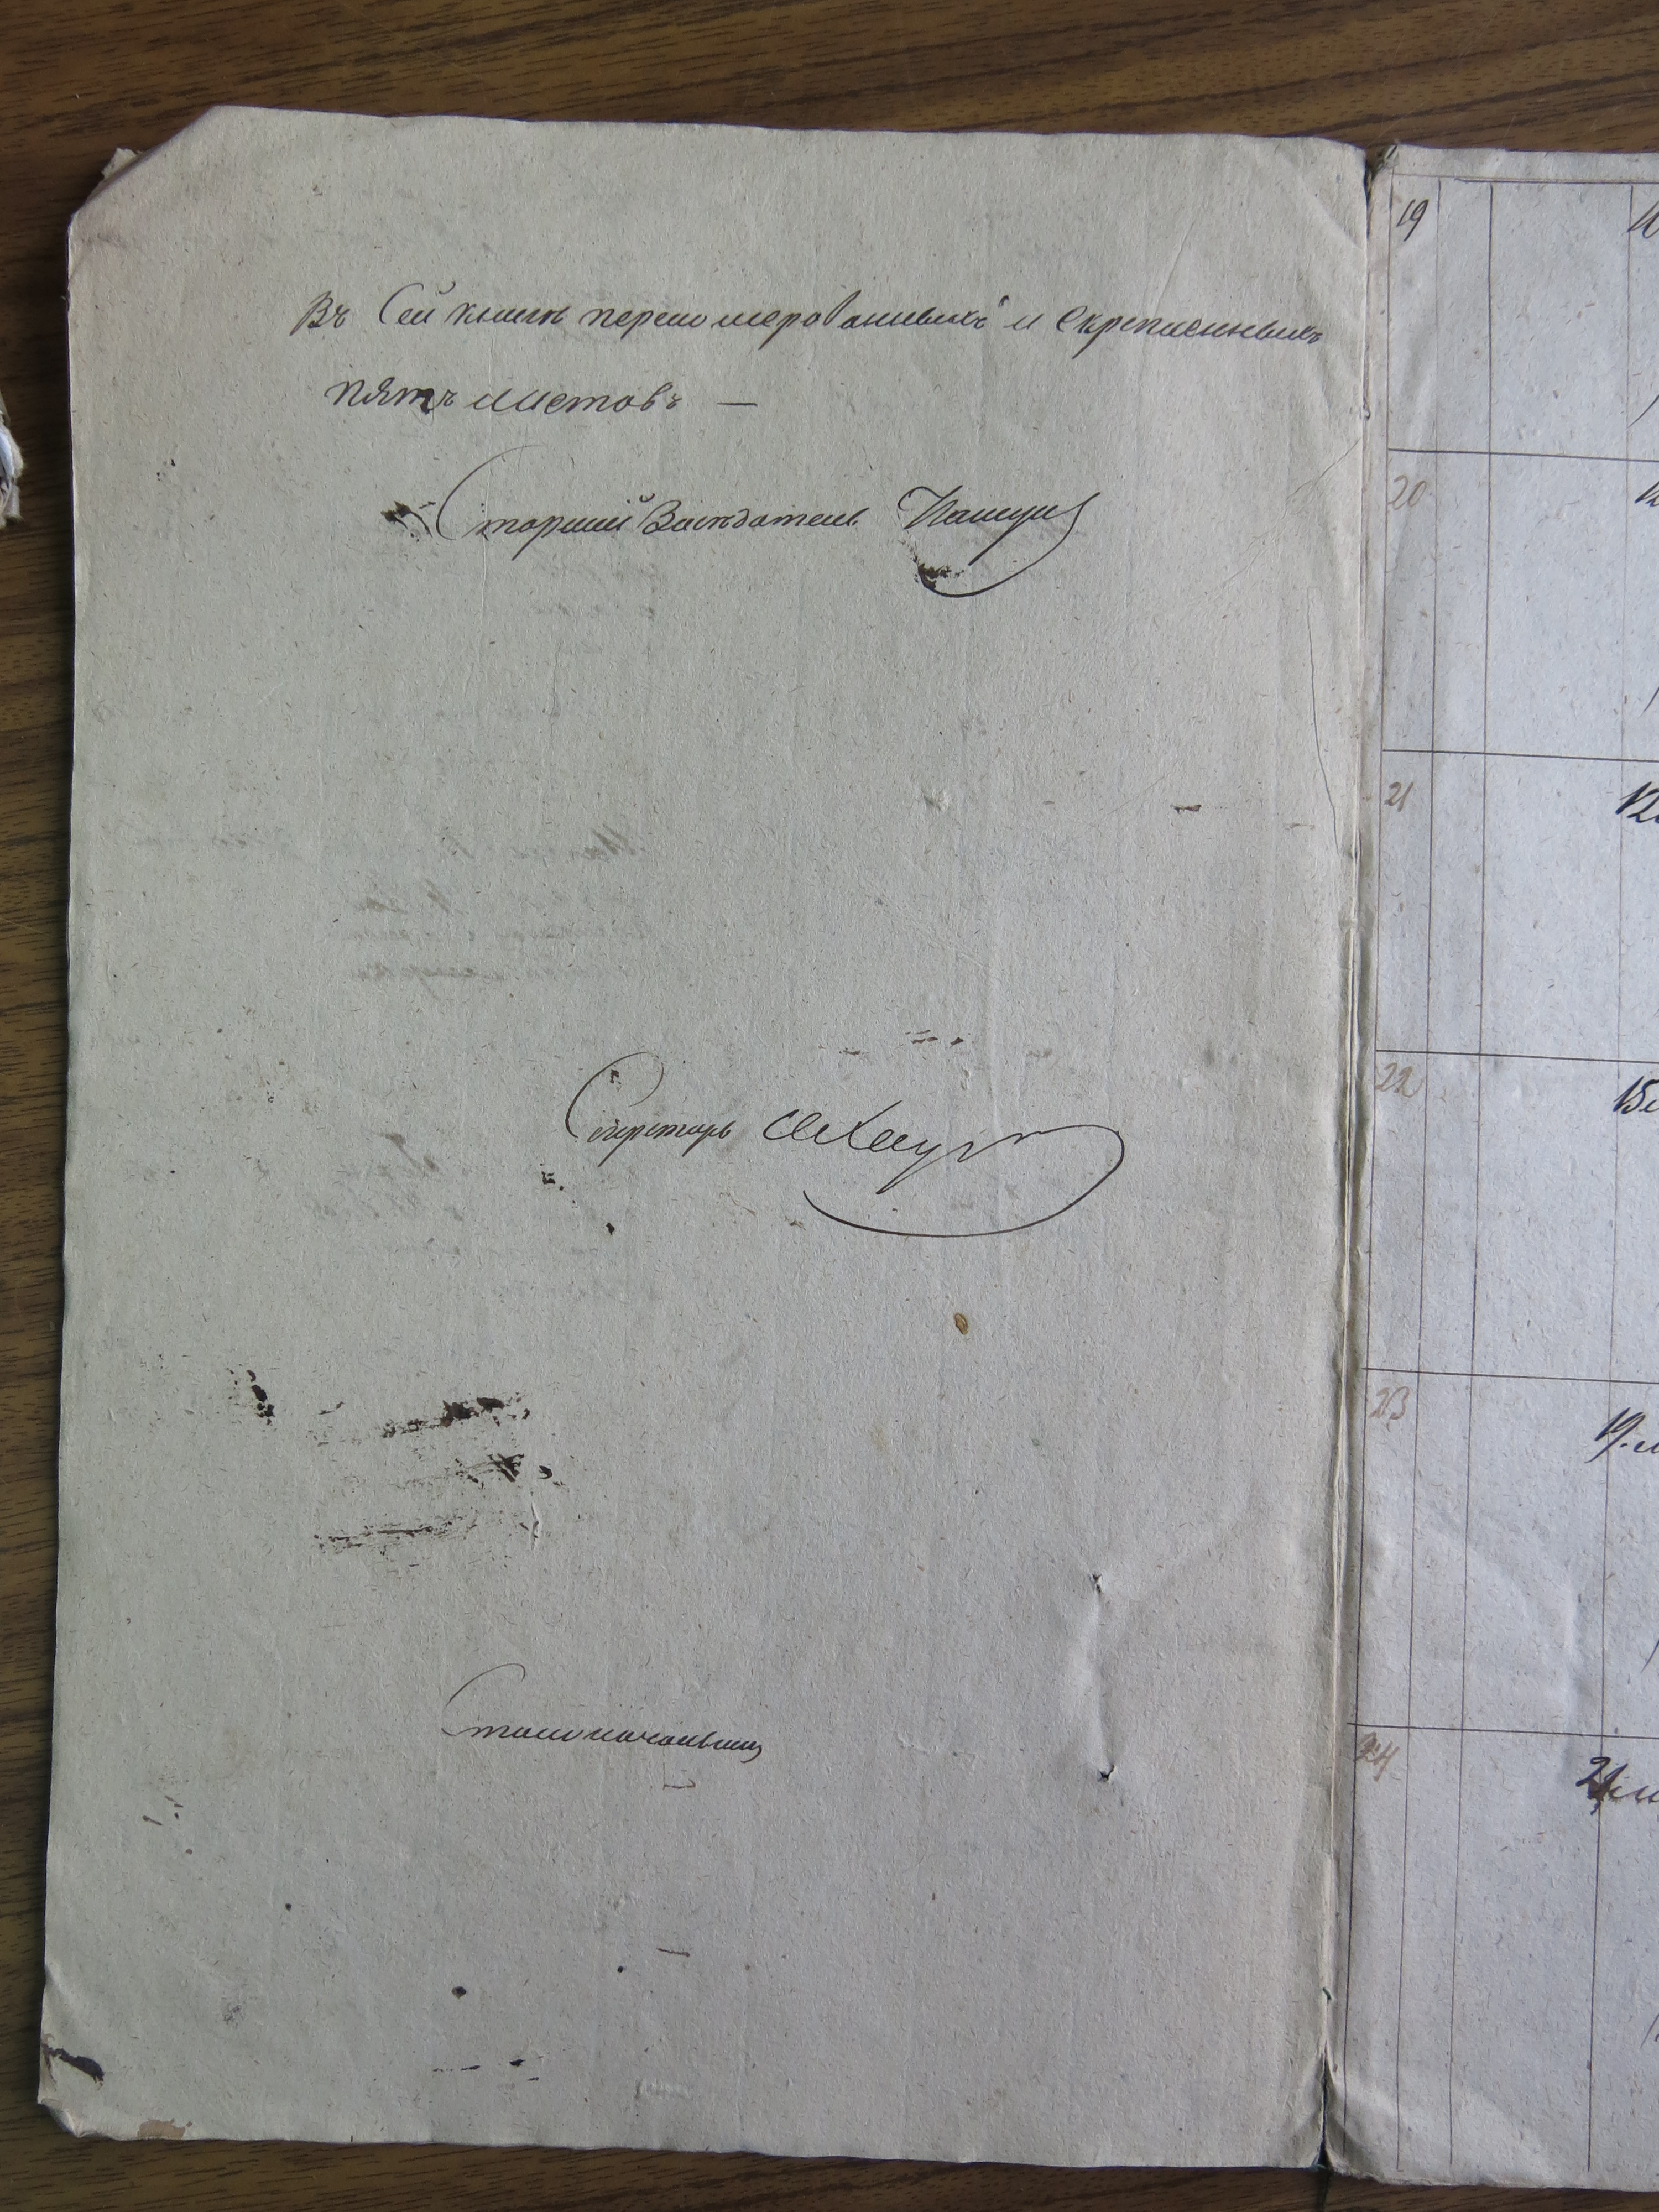 Въ Сей книгѣ перенумерованныхъ и скрепленныхъ
пять листовъ —
Старшій Засѣдатель
Секретарь
Столоначальникъ
19
20
21
22
23
24